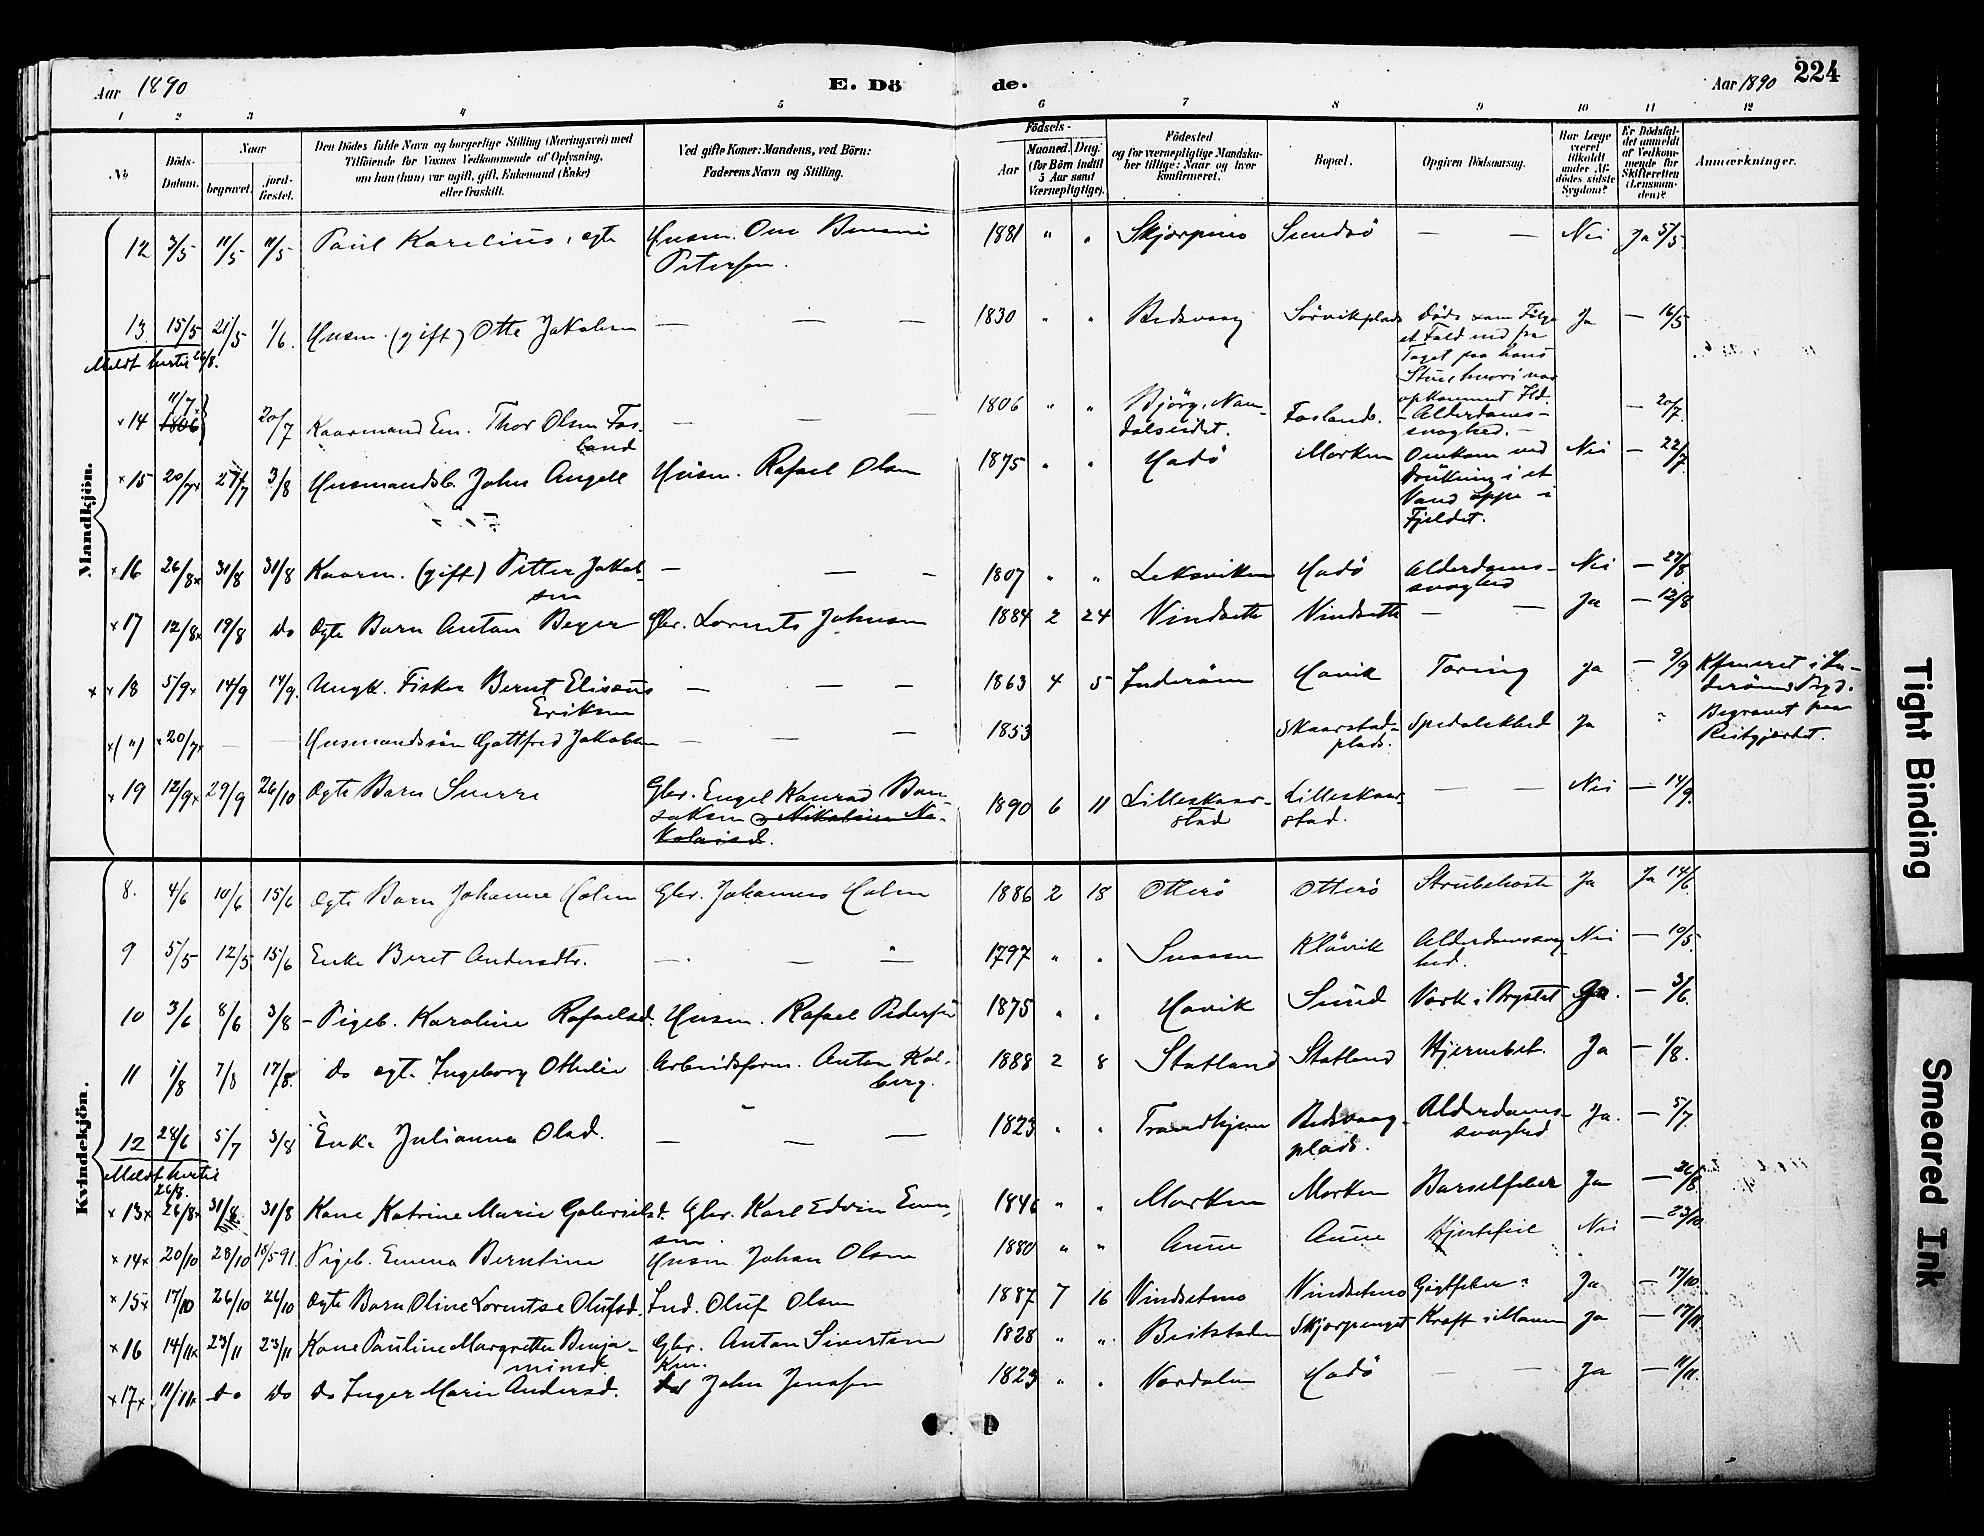 Aar 1890 E. Dö de. Aar 1890 224
1 2 3 4 5 6 7 8 9 10 11 12
No
Döds-Datum.
Naar
begravet.
jord-fæstet.
Den Dödes fulde Navn og borgerlige Stilling (Næringsvei) med
Tilföiende for Voxnes Vedkommende af Oplysning,
om hun (han) var ugift, gift, Enkemand (Enke)
eller fraskilt.
Ved gifte Koner: Mandens, ved Börn:
Faderens Navn og Stilling.
Födsels-
Aar
Maaned. Dag.
(for Börn indtil
5 Aar samt
Værnepligtige).
Födested
og for værnepligtige Mandska-
ber tillige: Naar og hvor
konfirmeret.
Bopæl.
Opgiven Dödsaarsag.
Har Læge
været
tilkaldt
under Af-
dödes sidste
Sygdom?
Er Dödsfal-
det anmeldt
af Vedkom-
mende for
Skifteretten
(Lensman-
den)?
Anmærkninger.
Mandkjön.
12 3/5 11/5 11/5 Paul Karelius, egte Husm. Ove 1881 " " Skjærpenes Sundsö — — Nei Ja 5/5
Petersen.
13 15/5 21/5 1/6. Husm. (gift) Otte Jakobsen — — — 1830 " " Bedsvaag Sörvikplads Döde som Fölge Ja — 16/5
et Fald ned fra
Taget paa hans
Meldt hertil 26/8.
Stue hvori var
opkommet Ild.
x14 11/7 1806 20/7 Kaarmand Em. Thor Olsen Fos- — — 1806 " " Björg, Nam- Foslands. - Alderdoms- — 20/7.
land
dalseidet.
svaghed. —
x15 20/7x 27/7 3/8 Husmandsb. John Angell Husm. Rafael Olsen 1875 " " Hadö Morken Omkom ved Nei — 22/7
Drukning i et
Vand oppe i
Fjeldet.
x16 26/8x 31/8 31/8 Kaarm. (gift) Petter Jakob- — — — 1807 " " Leksviken Hadö Alderdoms- Nei — 27/8
sen
svaghed
x17 12/8x 19/8 do Ægte Barn Anton Beyer Gbr. Lornts Johnsen 1884 2 24 Vindsetta Vindsetta — — Ja — 12/8
x x18 5/9x 14/9 14/9. Ungk. Fisker Bernt Eliseus — — — 1863 4 5 Inderöen Havik Tæring Ja — 9/9 Kfmeret i In-
Eriksen
deröens Pgd.
x(") x20/7x — — Husmandssön Gottfred Jakobsen — — — 1853 Skaarstad- Spedalskhed Ja " Begravet paa
plads.
Reitgjærdet.
x19 12/9x 29/9 26/10 Ægte Barn Sverre Gbr. Engel Konrad Ban- 1890 6 11 Lilleskaar- Lilleskaar- — — Nei — 14/9.
saksen & Nikoline Ni-
kolaisd.
stad
stad.
Kvindekjön.
8. 4/6 10/6 15/6 Ægte Barn Johanna Holm Gbr. Johannes Holm 1886 2 18 Otterö Otterö Strubehoste Ja Ja 14/6.
9 5/5 12/5 15/6 Enke Beret Andersdtr. — — — 1797 " " Snaasen Klövik Alderdomssvag- Nei — 10/5.
hed.
10 3/6 8/6 3/8 - Pigeb. Karoline Rafaelsd. Husm. Rafael Pedersen 1875 " " Havik Sund Værk i Brystet Ja. — 3/6.
11 1/8 7/8 17/8. do egt. Ingeborg Othelie Arbeidsform. Anton Kol- 1888 2 8 Statland Statland Hjernebet. Ja — 1/8.
berg.
12 28/6 5/7 3/8 Enke Julianna Olsd. — — — 1823 " " Trondhjem Bedsvaag- Alderdoms- Ja. — 5/7
plads.
svaghed
Meldt hertil
26/8.
x13x 26/8x 31/8 31/8 Kone Katrine Marie Gabrielsd. Gbr. Karl Edvin Even- 1846 " " Morken Morken Barselfeber Ja — 26/8.
sen.
x14x 20/10 28/10 18/5 91. Pigeb. Emma Berntine Husm Johan Olsen 1880 " " Aune Aune Hjertefeil Nei — 23/10.
x15x 17/10 26/10 26/10 Ægte Barn Oline Lorntse Olufsd. Ind. Oluf Olsen 1887 7 16 Vindsetmo Vindsetmo Gigtfeber Ja — 17/10.
x16 14/11x 23/11 23/11 Kone Pauline Margrette Benja- Gbr. Anton Sivertsen 1828 " " Beitstaden Skjærpenget Kræft i Maven Ja — 17/11.
minsd.
x17x 11/11x do do do Inger Marie Andersd. Km. John Jensen 1823 " " Værdalen Hadö — Ja — 11/11.
Tight Binding
Smeared Ink